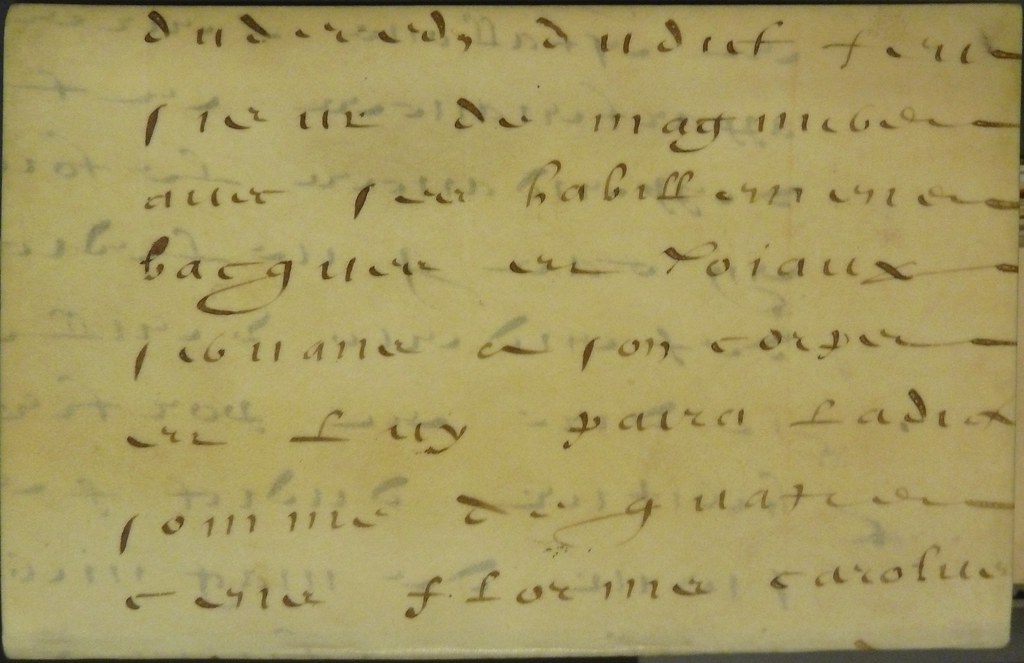 dudict feu
sieur de
avec ses habillemens
bacgues et Joiaux
servans a son corps
et Luy paira Ladict
somme de quatre
cens florins carolus